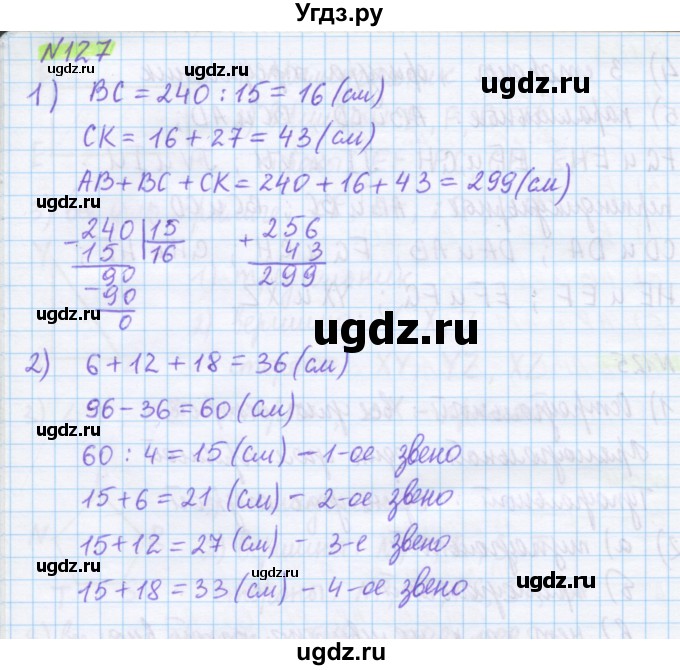 Угдз.ру
№127
1) BC = 240 : 15 = 16 (см)
CK = 16 + 27 = 43 (см)
AB + BC + CK = 240 + 16 + 43 = 299 (см)
240 | 15
- 15 | 16
90
- 90
0
256
+ 43
299
2) 6 + 12 + 18 = 36 (см)
96 - 36 = 60 (см)
60 : 4 = 15 (см) - 1-ое звено
15 + 6 = 21 (см) - 2-ое звено
15 + 12 = 27 (см) - 3-е звено
15 + 18 = 33 (см) - 4-ое звено
ugdz.ru
ugdz.ru
ugdz.ru
ugdz.ru
ugdz.ru
ugdz.ru
ugdz.ru
ugdz.ru
ugdz.ru
ugdz.ru
ugdz.ru
ugdz.ru
ugdz.ru